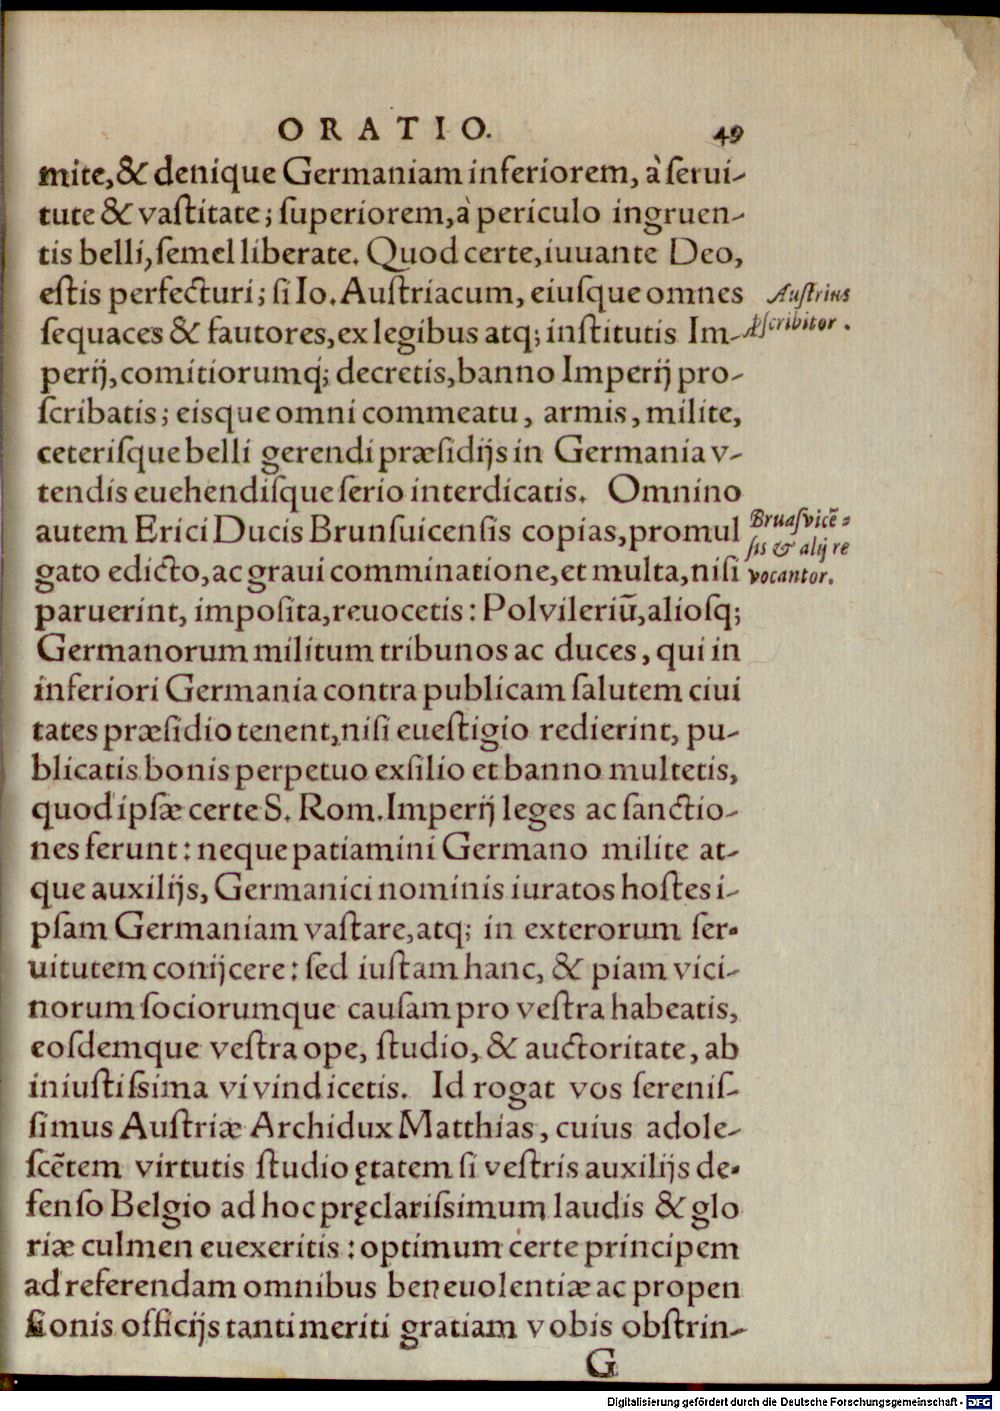 ORATIO. 49
mite, & denique Germaniam inferiorem, à serui-
tute & vastitate; superiorem, à periculo ingruen-
tis belli, semel liberate. Quod certe, iuuante Deo,
estis perfecturi; si Io. Austriacum, eiusque omnes
sequaces & fautores, ex legibus atq; institutis Im-
perij, comitiorumq́; decretis, banno Imperij pro-
scribatis; eisque omni commeatu, armis, milite,
ceterisque belli gerendi præsidijs in Germania v-
tendis euehendisque serio interdicatis. Omnino
autem Erici Ducis Brunsuicensis copias, promul
gato edicto, ac graui comminatione, et multa, nisi
paruerint, imposita, reuocetis: Polvileriū, aliosq;
Germanorum militum tribunos ac duces, qui in
inferiori Germania contra publicam salutem ciui
tates præsidio tenent, nisi euestigio redierint, pu-
blicatis bonis perpetuo exsilio et banno multetis,
quod ipsæ certe S. Rom. Imperij leges ac sanctio-
nes ferunt: neque patiamini Germano milite at-
que auxilijs, Germanici nominis iuratos hostes i-
psam Germaniam vastare, atq; in exterorum ser-
uitutem conijcere: sed iustam hanc, & piam vici-
norum sociorumque causam pro vestra habeatis,
eosdemque vestra ope, studio, & auctoritate, ab
iniustissima vi vindicetis. Id rogat vos serenis-
simus Austriæ Archidux Matthias, cuius adole-
scētem virtutis studio ętatem si vestris auxilijs de-
fenso Belgio ad hoc pręclarissimum laudis & glo
riæ culmen euexeritis: optimum certe principem
ad referendam omnibus beneuolentiæ ac propen
sionis officijs tanti meriti gratiam vobis obstrin-
G
Austrius
Pscribitor.
Brūasvicē-
sis & alij re
vocantor.
Digitalisierung gefördert durch die Deutsche Forschungsgemeinschaft - DFG